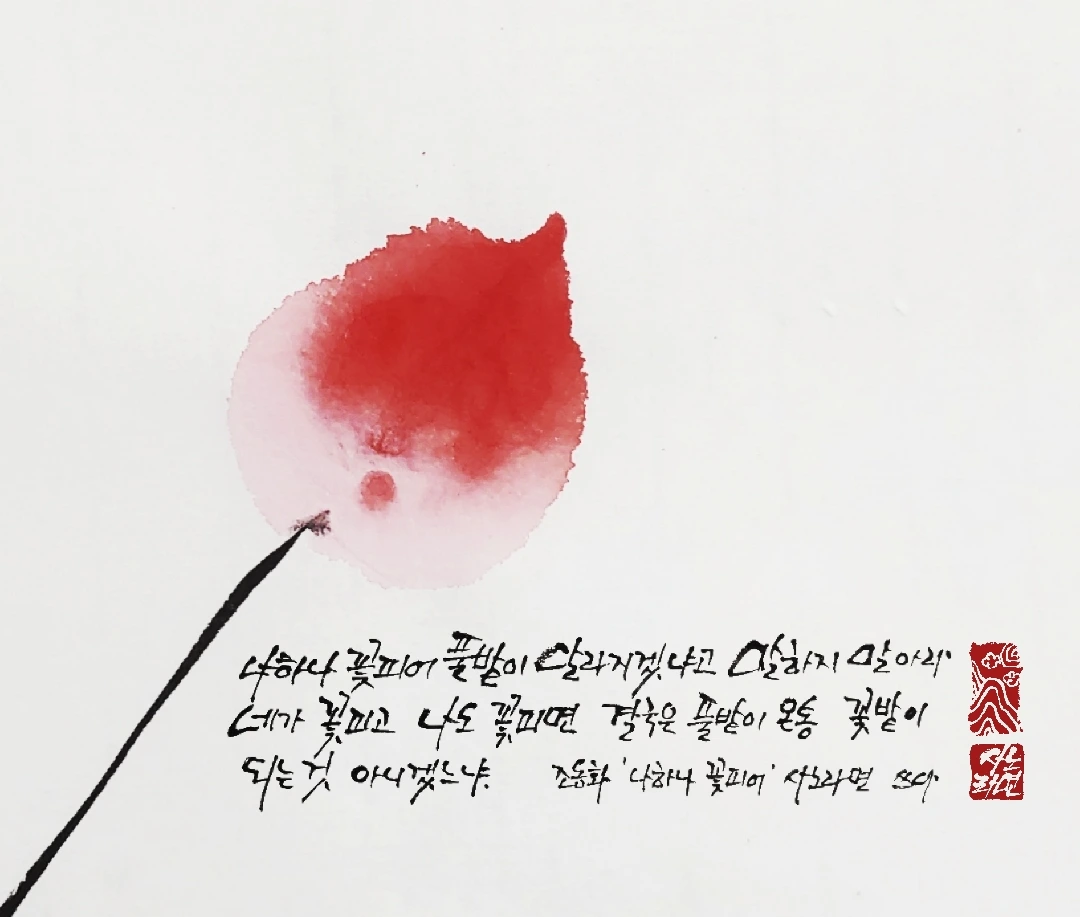 나하나 꽃피어 풀밭이 달라지겠냐고 말하지 말아라.
네가 꽃피고 나도 꽃피면 결국은 풀밭이 온통 꽃밭이
되는것 아니겠느냐. 조동화 '나하나 꽃피어' 사노라면 쓰다.
사노
라면